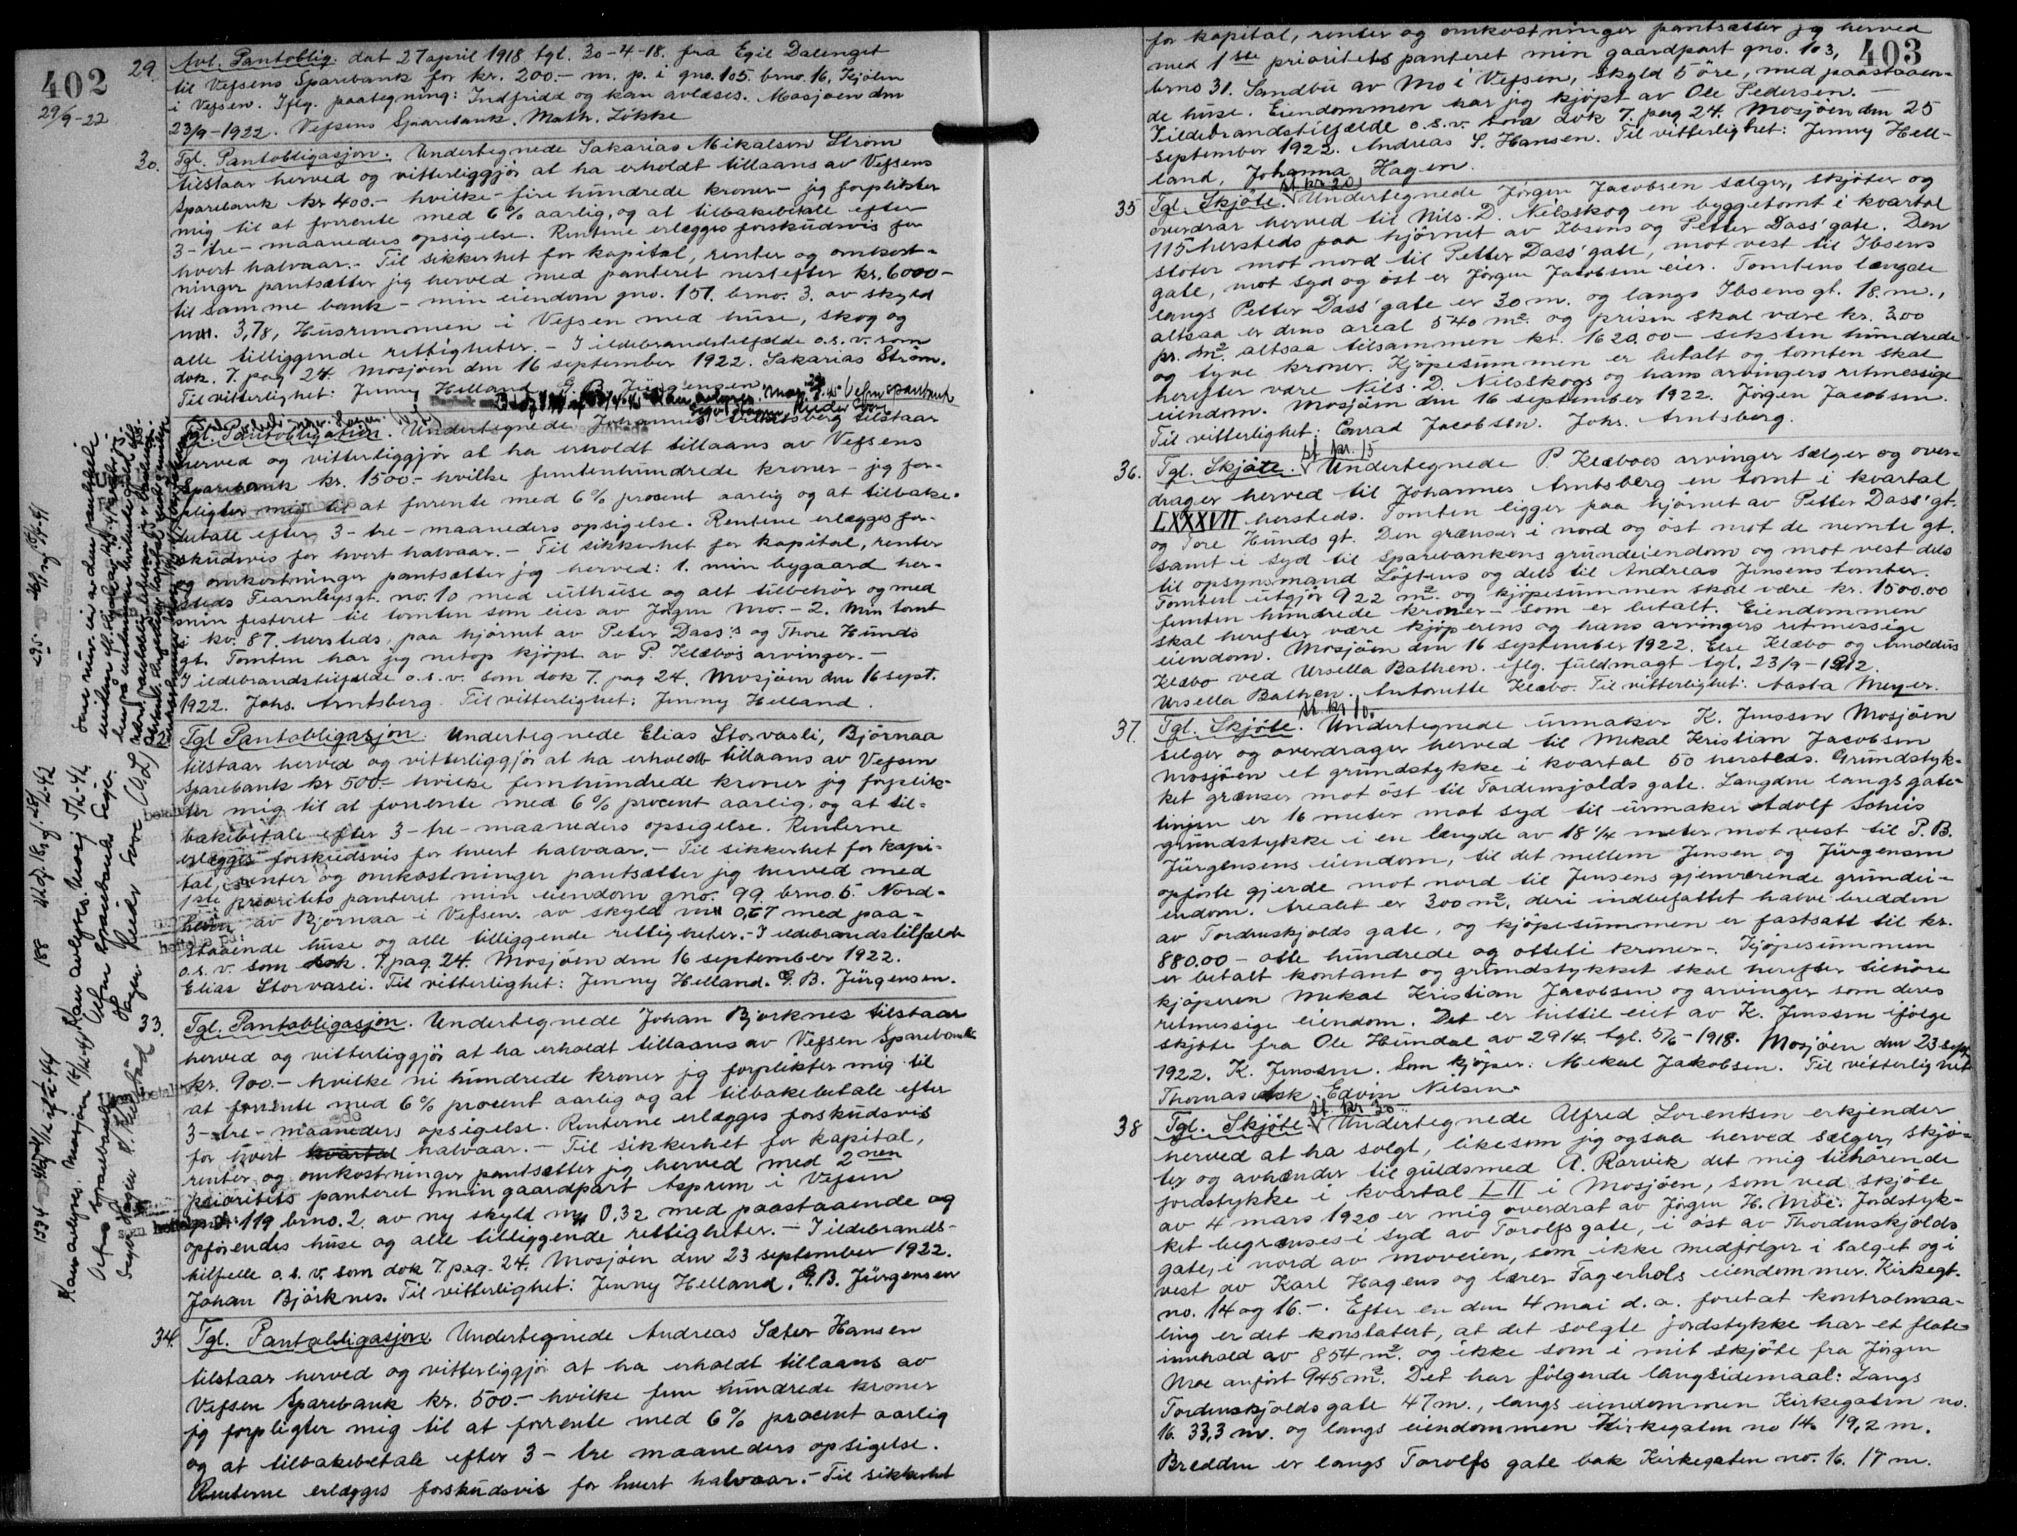 402
29/9-22
29. Avl. Pantoblig. dat 27 april 1918 tgl. 30-4-18. fra Egil Dalenget
til Vefsens Sparebank for kr. 200.- m. p. i gno. 105. brno. 16, Kjölen
i Vefsen. Iflg. paategning: Indfridd og kan avlæses. Mosjøen den
23/9-1922. Vefsens Sparebank. Math. Løkke
30. Tgl. Pantobligasjon. Undertegnede Sakarias Mikalsen Strøm
tilstaar herved og vitterliggjör at ha erholdt tillaans av Vefsens
Sparebank kr 400.- hvilke - fire hundrede kroner - jeg forplikter
mig til at forrente med 6% aarlig, og at tilbakebetale efter
3-tre-maaneders opsigelse. Rentene erlægges forskudsvis for
hvert halvaar.- Til sikkerhet for kapital, renter og omkost-
ninger pantsætter jeg herved med panteret nestefter kr. 6000-
til samme bank - min eiendom gno. 151. brno. 3. av skyld
mrk. 3,78, Husrummen i Vefsen med huse, skog og
alle tilliggende rettigheter. - I ildebrandstilfælde o.s.v. som
dok. 7. pag 24 Mosjöen den 16 september 1922. Sakarias Ström.
Til vitterlighet: Jenny Helland G. B. Jürgensen
Tgl. Pantobligation. Undertegnede Johannes Arntsberg tilstaar
herved og vitterliggjör at ha erholdt tillaans av Vefsens
Sparebank kr. 1500.- hvilke femtenhundrede kroner - jeg for-
pligter mig til at forrente med 6% procent aarlig og at tilbake-
betale efter 3-tre-maaneders opsigelse. Rentene erlægges for-
skudsvis for hvert halvaar.- Til sikkerhet for kapital, renter
og omkostninger pantsætter jeg herved: 1. min bygaard her-
steds Fearnleysgt. no. 10 med uthuse og alt tilbehör og med
min festeret til tomten som eies av Jörgen Mo.- 2. Min tomt
i kv. 87. hersteds, paa hjörnet av Peter Dass's og Thore Hunds
gt. Tomten har jeg netop kjöpt av P. Klæbos arvinger.-
I ildebrandstilfælde o.s.v. som dok 7. pag 24. Mosjöen den 16 sept.
1922. Johs. Arntsberg. Til vitterlighet: Jenny Helland.
Tgl Pantobligasjon. Undertegnede Elias Storvasli, Björnaa
tilstaar herved og vitterliggjör at ha erholdt tillaans av Vefsen
Sparebank kr 500.- hvilke femhundrede kroner jeg forplik-
ter mig til at forrente med 6% procent aarlig, og at til-
bakebetale efter 3-tre-maaneders opsigelse. Renterne
erlægges forskudsvis for hvert halvaar.- Til sikkerhet for kapi-
tal, renter og omkostninger pantsætter jeg herved med
1ste prioritets panteret min eiendom gno. 99. brno 5 Nord-
heim av Björnaa i Vefsen. av skyld mrk 0,67 med paa-
staaende huse og alle tilliggende rettigheter.- I ildebrandstilfælde
o.s.v. som dok. 7. pag. 24. Mosjöen den 16 september 1922.
Elias Storvasli. Til vitterlighet: Jenny Helland. G. B. Jürgensen.
33. Tgl. Pantobligasjon. Undertegnede Johan Bjorknes tilstaar
herved og vitterliggjör at ha erholdt tillaans av Vefsen Sparebank
kr. 900.- hvilke ni hundrede kroner jeg forplikter mig til
at forrente med 6% procent aarlig og at tilbakebetale efter
3-tre-maaneders opsigelse. Renterne erlægges forskudsvis
for hvert kvartal halvaar.- Til sikkerhet for kapital,
renter og omkostninger pantsætter jeg herved med 2nen
prioritets panteret min gaardpart Asprem i Vefsen
119 brno. 2. av ny skyld mrk 0,32 med paastaaende og
opförendes huse og alle tilliggende rettigheter. - I ildebrands-
tilfelle o.s.v. som dok 7. pag. 24. Mosjöen den 23 september 1922.
Johan Björknes. Til vitterlighet: Jenny Helland. G. B. Jürgensen
34. Tgl. Pantobligasjon Undertegnede Andreas Sæter Hansen
tilstaar herved og vitterliggjör at ha erholdt tillaans av
Vefsen Sparebank kr. 500.- hvilke fem hundrede kroner
jeg forpligter mig til at forrente med 6% procent aarlig
og at tilbakebetale efter 3-tre maaneders opsigelse.
Renterne erlægges forskudsvis for hvert halvaar.- Til sikkerhet
403
for kapital, renter og omkostninger pantsætter jeg herved
med 1ste prioritets panteret min gaardpart gno. 103,
brno 31. Sandbu av Mo i Vefsen, skyld 5 öre, med paastaaen-
de huse. Eiendommen har jeg kjöpt av Ole Pedersen. -
I ildebrandstilfælde o.s.v. som dok 7. pag 24. Mosjöen den 25
september 1922. Andreas S. Hansen. Til vitterlighet: Jenny Hell-
land, Johanna Hagen.
st kr 20
35 Tgl. Skjöte. Undertegnede Jörgen Jacobsen sælger, skjöter og
overdrar herved til Nils. D. Nilsskog en byggetomt i kvartal
115 hersteds paa hjörnet av Ibsens og Petter Dass' gate. Den
stöter mot nord til Petter Dass' gate, mot vest til Ibsens
gate, mot syd og öst er Jörgen Jacobsen eier. Tomtens længde
langs Petter Dass' gate er 30 m. og langs Ibsens gt. 18. m.,
altsaa er dens areal 540 m2. og prisen skal være kr. 3.00
pr. m2. altsaa tilsammen kr. 1620.00 - seksten hundrede
og tyve kroner. Kjöpesummen er betalt og tomten skal
herefter være Nils. D. Nilsskogs og hans arvingers retmessige
eiendom. Mosjöen den 16 september 1922. Jörgen Jacobsen.
Til vitterlighet: Conrad Jacobsen. Johs. Arntsberg.
st kr. 15
36. Tgl. Skjöte. Undertegnede P. Klæboes arvinger sælger og over-
drager herved til Johannes Arntsberg en tomt i kvartal
LXXXVII hersteds. Tomten ligger paa hjörnet av Petter Dass' gt.
og Tore Hunds gt. Den grænser i nord og öst mot de nevnte gt.
samt i syd til Sparebankens grundeiendom og mot vest dels
til opsynsmand Löftens og dels til Andreas Jensens tomter.
Tomten utgjör 922 m2. og kjöpesummen skal være kr. 1500.00
femten hundrede kroner - som er betalt. Eiendommen
skal herefter være kjöperens og hans arvingers retmessige
eiendom. Mosjöen den 16 september 1922. Else Klæbo og Arnoldus
Klæbo ved Ursella Bathen. iflg. fuldmagt tgl. 23/9-1912.
Ursella Bathen. Antonette Klæbo. Til vitterlighet: Aasta Meyer.
st. kr 10.
37. Tgl. Skjöte. Undertegnede urmaker K. Jenssen Mosjöen
selger og overdrager herved til Mekal Kristian Jacobsen
Mosjöen et grundstykke i kvartal 50 hersteds. Grundstyk-
ket grænser mot öst til Tordenskjolds gate. Længden langs gate-
linjen er 16 meter mot syd til urmaker Adolf Schüs
grundstykke i en længde av 18 1/4 meter mot vest til P. B.
Jürgensens eiendom, til det mellem Jensen og Jürgensen
opförte gjerde mot nord til Jensens gjenværende grundei-
endom. Arealet er 300 m2, deri indbefattet halve bredden
av Tordenskjolds gate, og kjöpesummen er fastsatt til kr.
880.00 - otte hundrede og otteti kroner-. Kjöpesummen
er betalt kontant og grundstykket skal herefter tilhöre
kjöperen Mekal Kristian Jacobsen og arvinger som deres
retmessige eiendom. Det er hittil eiet av K. Jenssen ifölge
skjöte fra Ole Hundal av 29/4. tgl. 5/6-1918. Mosjöen den 23 sept.
1922. K. Jenssen. Som kjöper: Mekal Jakobsen. Til vitterlighet
Thomas Ask. Edvin Nilsen.
st kr 30
38 Tgl. Skjöte Undertegnede Alfred Lorentsen erkjender
herved at ha solgt, likesom jeg ogsaa herved sælger, skjö-
ter og avhænder til guldsmed A. Rarvik det mig tilhörende
jordstykke i kvartal LII i Mosjöen, som ved skjöte
av 4 mars 1920 er mig overdrat av Jörgen H. Moe. Jordstyk-
ket begrænses i syd av Torolfs gate, i öst av Thordenskjolds
gate, i nord av moveien, som ikke medfölger i salget og i
vest av Karl Hagens og lærer Fagerhols eiendommer. Kirkegt.
no. 14 og 16-. Efter en den 4 mai d.a. foretat kontrolmaa-
ling er det konstatert, at det solgte jordstykke har et flate-
innhold av 854 m2. og ikke som i mit skjöte fra Jörgen
Moe anfört 945 m2. Det har fölgende langsidemaal: Langs
Tordenskjolds gate 47 m., langs eiendommen Kirkegaten no.
16. 33,3 m. og langs eiendommen Kirkegaten no 14. 19,2 m.
Bredden er langs Torolfs gate bak Kirkegaten no. 16. 17 m.